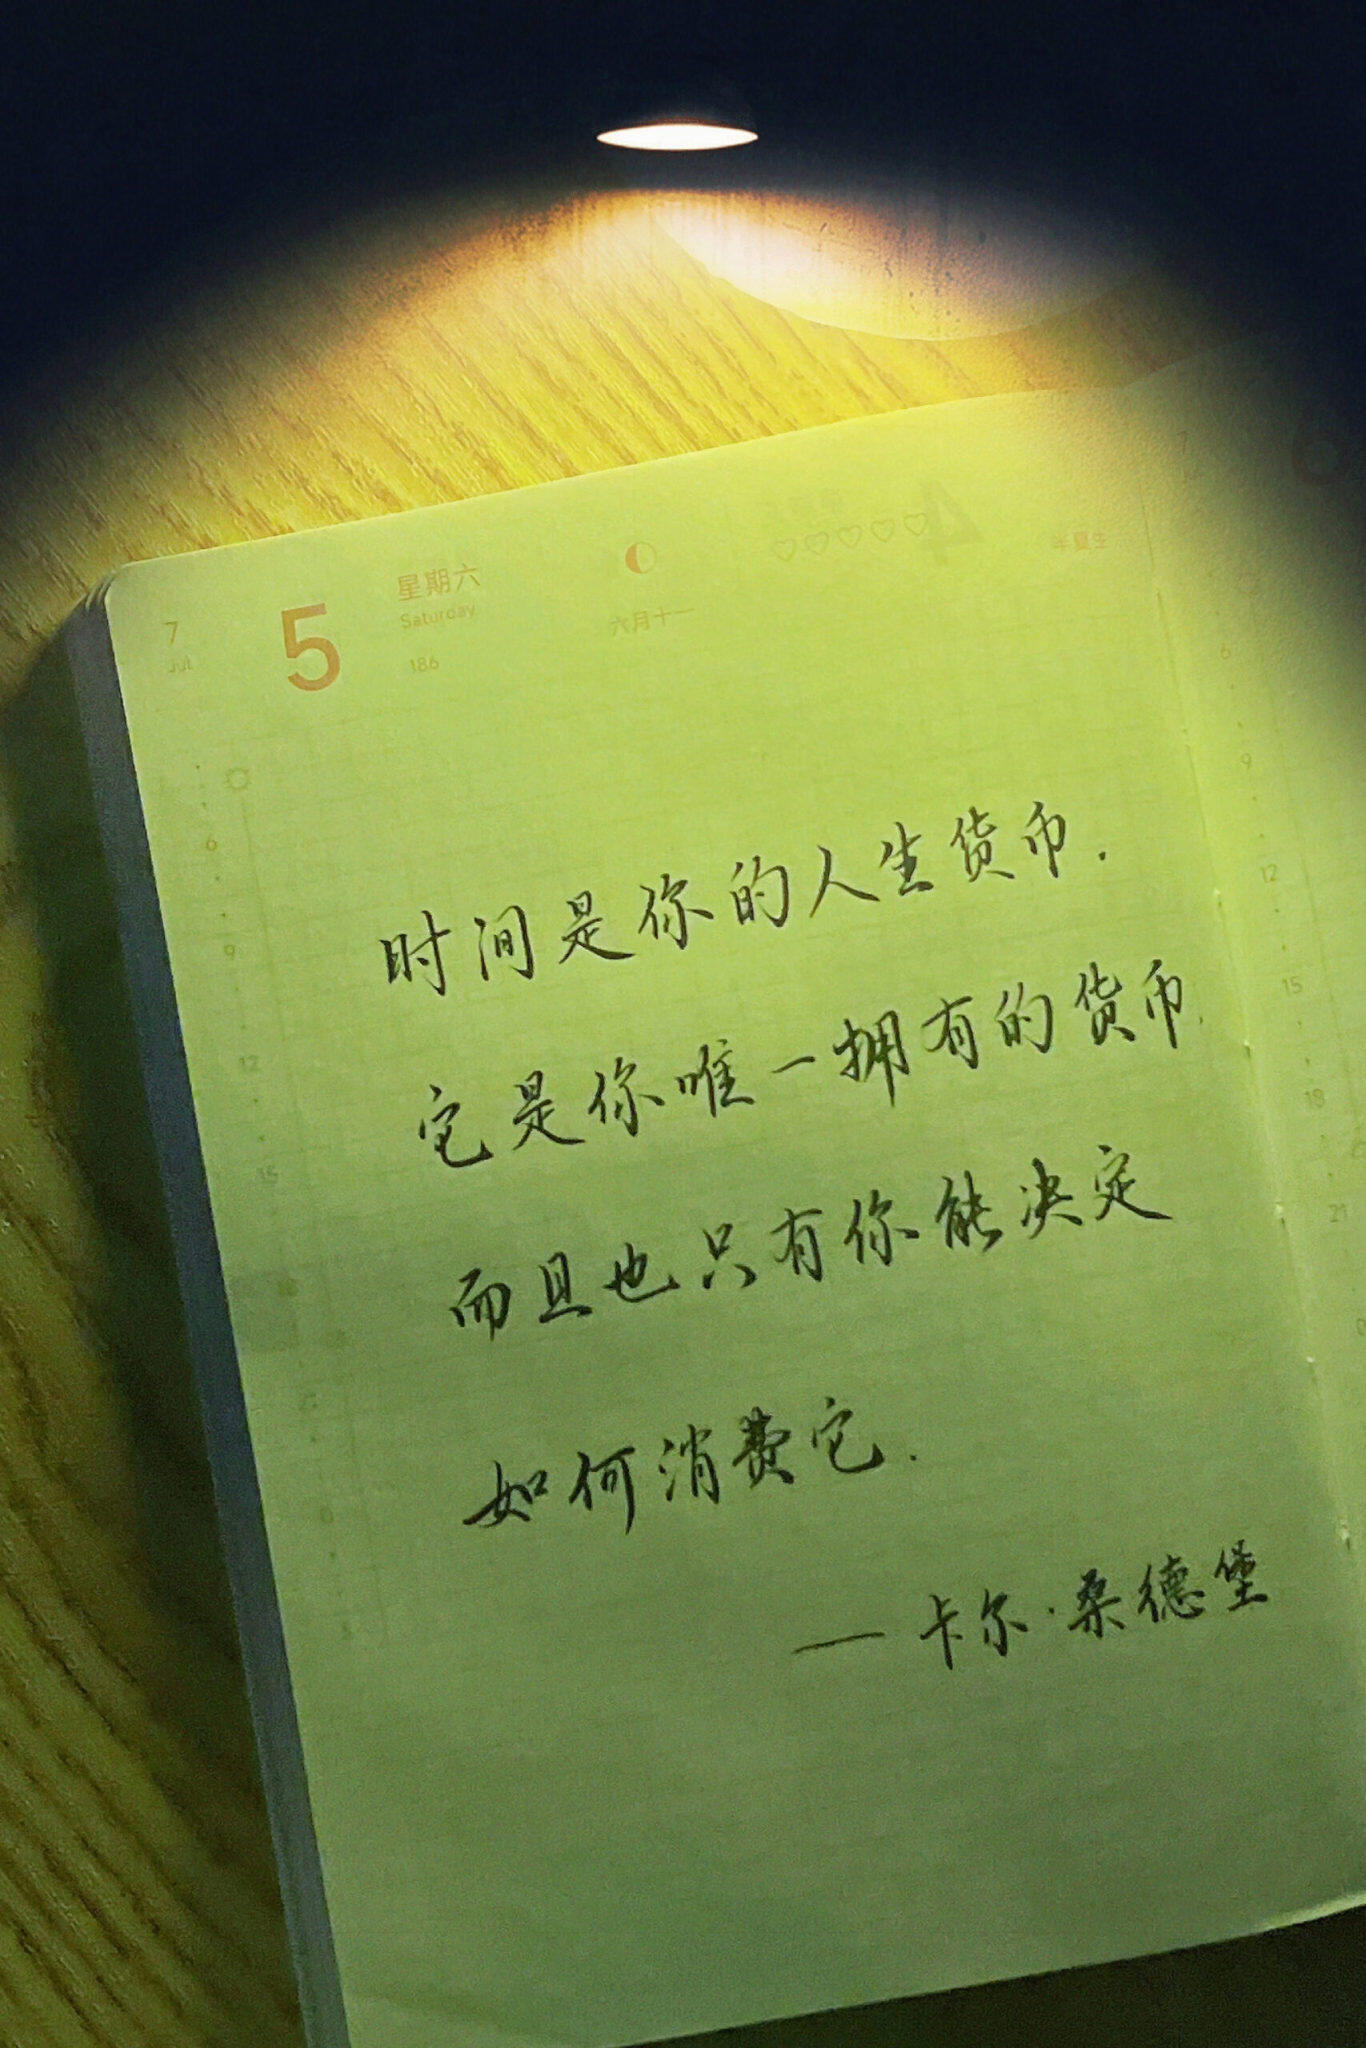 7
Jul
5
星期六
Saturday
186
六月十一
半夏生
6
9
12
15
时间是你的人生货币.
它是你唯一拥有的货币.
而且也只有你能决定
如何消费它.
— 卡尔·桑德堡
7
6
9
12
15
18
21